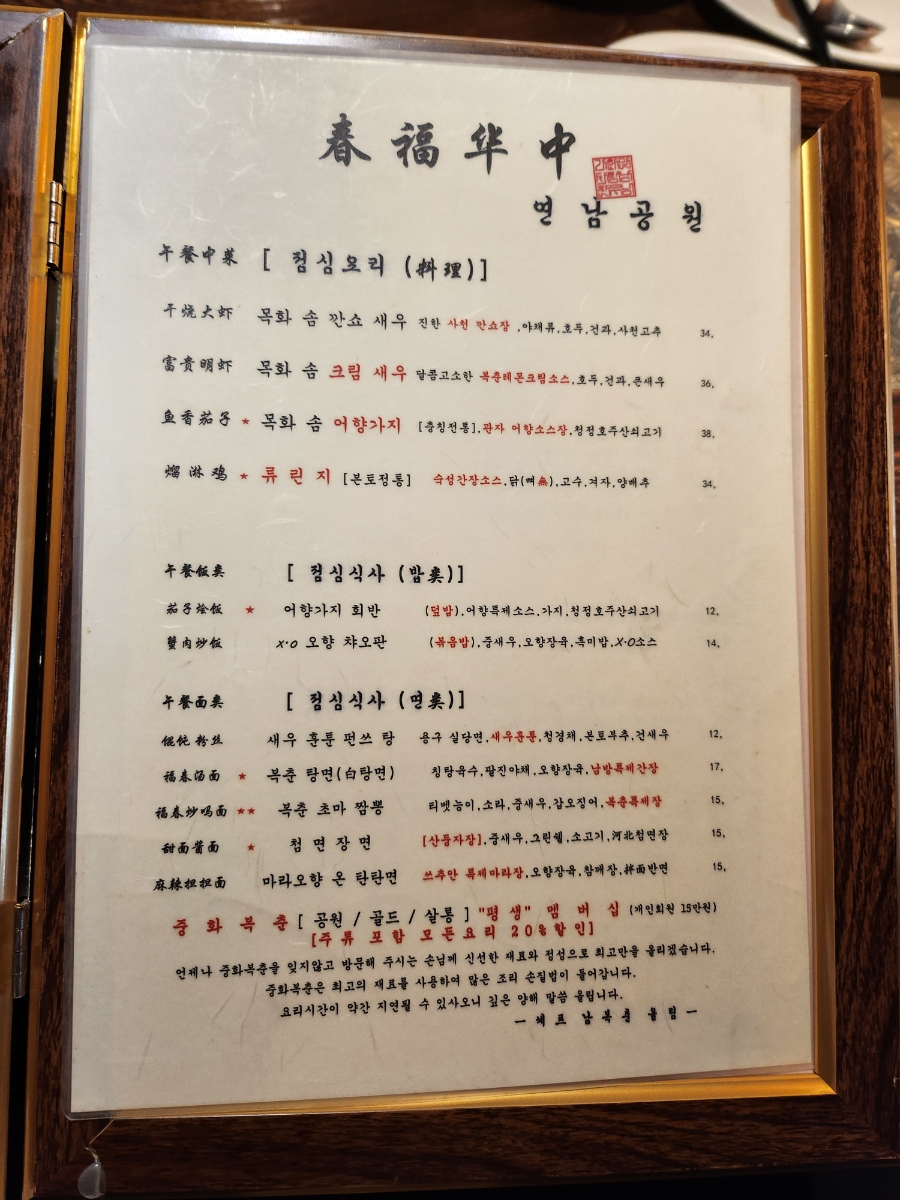 春福华中
연남공원
午餐中菜 [ 점심요리 (料理)]
干烧大虾 목화 솜 깐쇼 새우 진한 사천 깐쇼장 ,야채류,호두,건과,사천고추 34,
富贵明虾 목화 솜 크림 새우 달콤고소한 복춘레몬크림소스,호두,건과,큰새우 36,
鱼香茄子 ★ 목화 솜 어향가지 [충칭전통],관자 어향소스장,청정호주산쇠고기 38,
熘淋鸡 ★ 류린지 [본토정통] 숙성간장소스,닭(뼈無),고수,겨자,양배추 34,
午餐饭类 [ 점심식사 (밥类)]
茄子烩饭 ★ 어향가지 회반 (덮밥),어향특제소스,가지,청정호주산쇠고기 12,
蟹肉炒饭 X·O 오향 챠오판 (볶음밥),중새우,오향장육,흑미밥,X·O소스 14,
午餐面类 [ 점심식사 (면类)]
馄饨粉丝 새우 훈툰 펀쓰 탕 용구 실당면,새우훈툰,청경채,본토부추,건새우 12,
福春汤面 ★ 복춘 탕면(白탕면) 칭탕육수,팔진야채,오향장육,남방특제간장 17,
福春炒吗面 ★★ 복춘 초마 짬뽕 티벳능이,소라,중새우,갑오징어,복춘특제장 15,
甜面酱面 ★ 첨면장면 [산동자장],중새우,그린쉘,소고기,河北첨면장 15,
麻辣担担面 마라오향 온 탄탄면 쓰추안 특제마라장,오향장육,참깨장,拌面반면 15,
중화복춘 [ 공원 / 골드 / 살롱 ] "평생" 멤버십 (개인회원 15만원)
[주류 포함 모든요리 20%할인]
언제나 중화복춘을 잊지않고 방문해 주시는 손님께 신선한 재료와 정성으로 최고만을 올리겠습니다.
중화복춘은 최고의 재료를 사용하여 많은 조리 손질법이 들어갑니다.
요리시간이 약간 지연될 수 있사오니 깊은 양해 말씀 올립니다.
ー쉐프 남복춘 올림ー